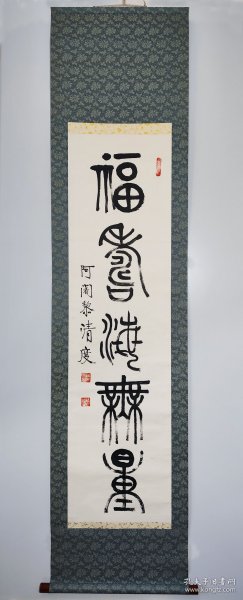 福壽海無量
阿闍黎清度
孔夫子旧书网
www.kongfz.com